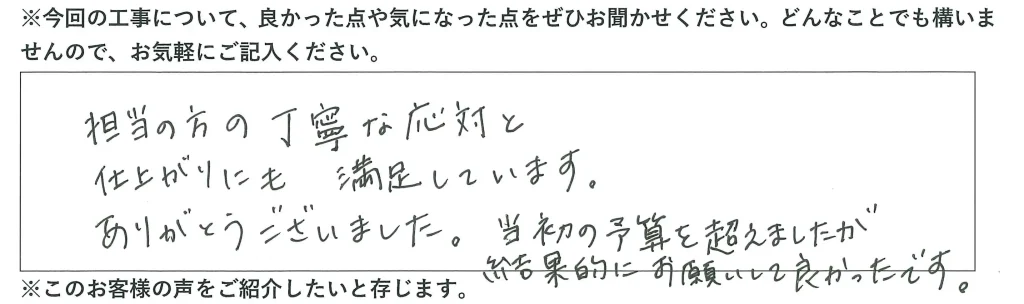 ※今回の工事について、良かった点や気になった点をぜひお聞かせください。どんなことでも構いま
せんので、お気軽にご記入ください。
担当の方の丁寧な応対と
仕上がりにも 満足しています。
ありがとうございました。当初の予算を超えましたが
結果的にお願いして良かったです。
※このお客様の声をご紹介したいと存じます。